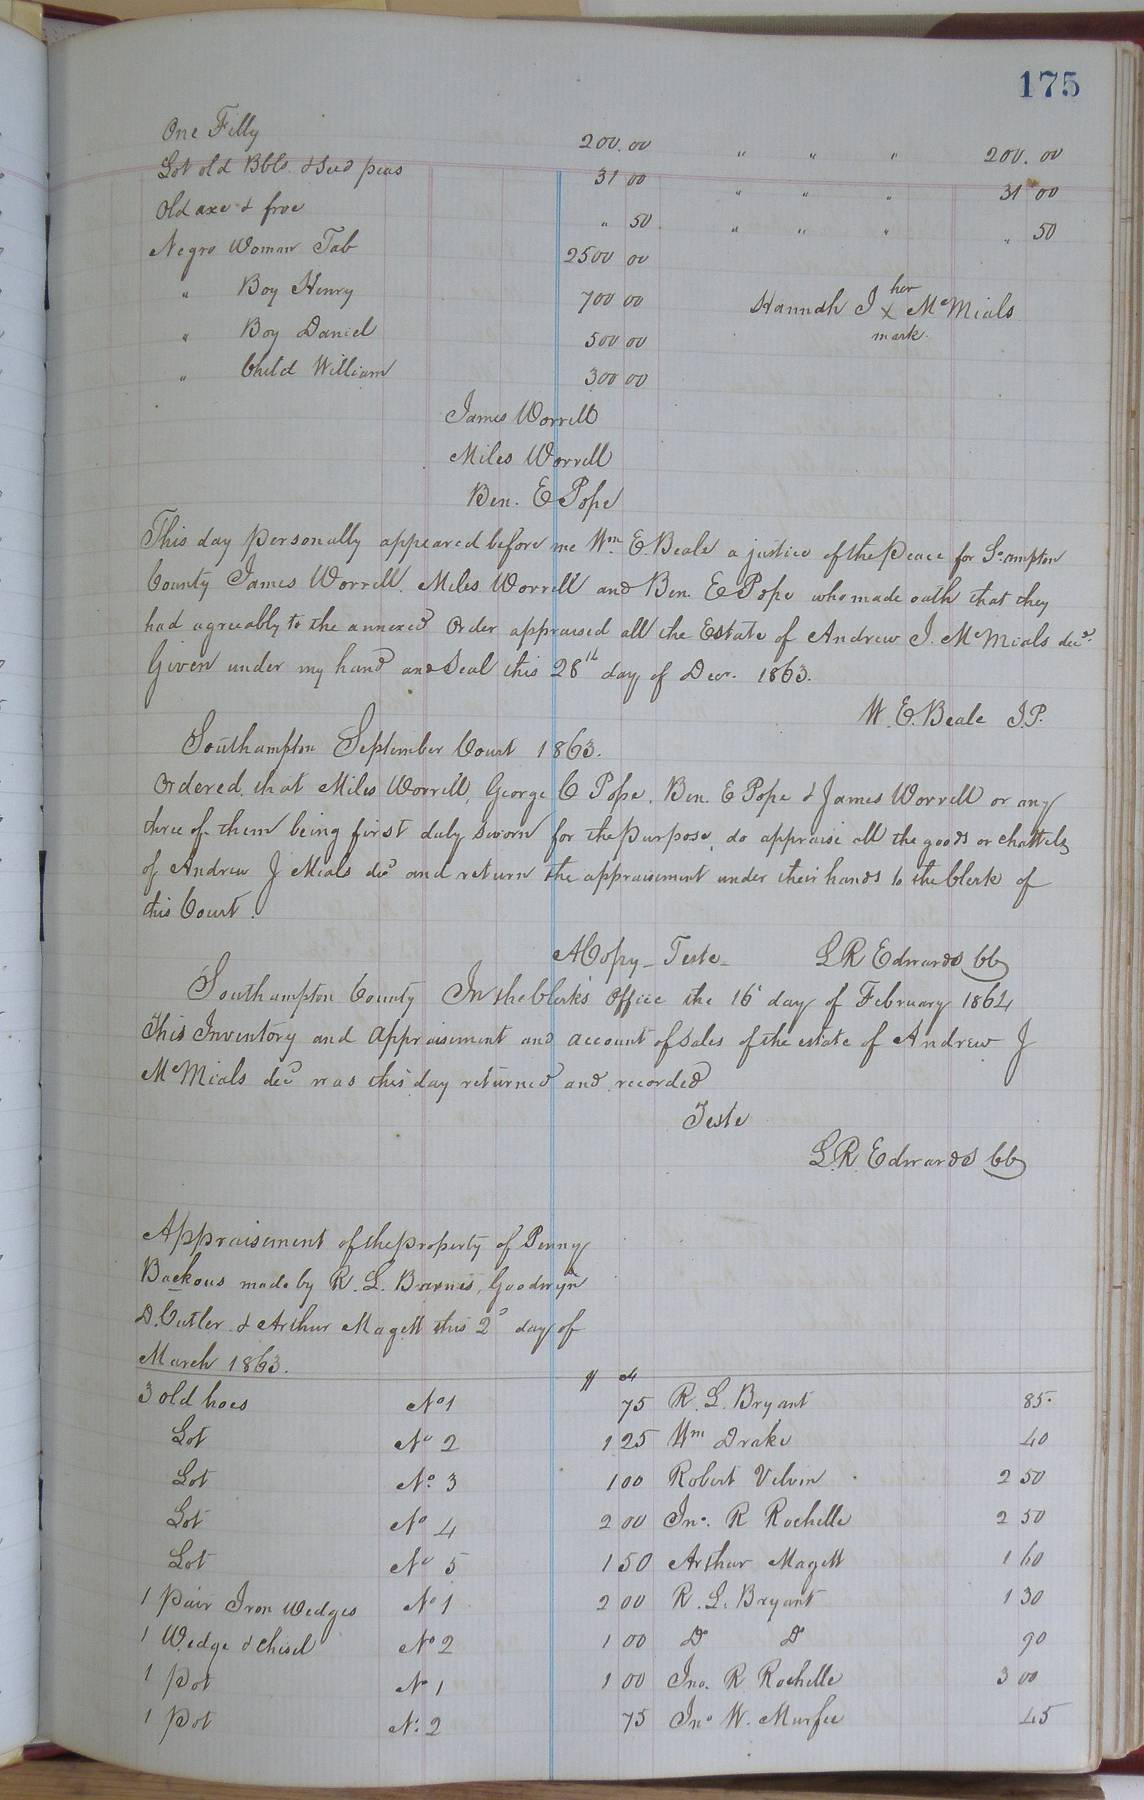 175
One Filly 200.00 " " " 200.00
Lot old Bbls & Seed peas 31 00 " " " 31 00
Old axe & froe " 50 " " " " 50
Negro Woman Tab 2500 00
" Boy Henry 700 00 Hannah J her x mark McMials
" Boy Daniel 500 00
" Child William 300 00
James Worrell
Miles Worrell
Ben. E Pope
This day personally appeared before me Wm E. Beale a justice of the Peace for So.ampton
County James Worrell. Miles Worrell and Ben. E Pope who made oath that they
had agreeably to the annexed Order appraised all the Estate of Andrew J. McMials decd.
Given under my hand and Seal this 28th day of Decr. 1863.
W. E. Beale J.P.
Southampton September Court 1863.
Ordered, that Miles Worrell, George C Pope, Ben. E Pope & James Worrell or any
three of them being first duly sworn for the purpose, do appraise all the goods or chattels
of Andrew J Mials decd and return the appraisement under their hands to the Clerk of
this Court.
A Copy - Teste - L R Edwards CC
Southampton County In the Clerk's Office the 16 day of February 1864
This Inventory and appraisement and account of sales of the estate of Andrew J
McMials decd was this day returned and recorded
Teste
L. R. Edwards CC
Appraisement of the property of Penny
Backous made by R. L. Barnes, Goodwyn
D. Cutler & Arthur Magett this 2d day of
March 1863.
$ cts
3 old hoes No 1 75 R. L. Bryant 85.
Lot No 2 1 25 Wm Drake 40
Lot No. 3 1 00 Robert Vilvin 2 50
Lot No 4 2 00 Jno. R Rochelle 2 50
Lot No 5 1 50 Arthur Magett 1 60
1 Pair Iron Wedges No 1 2 00 R. L. Bryant 1 30
1 Wedge & Chisel No 2 1 00 Do Do 90
1 Pot No 1 1 00 Jno. R Rochelle 3 00
1 Pot No. 2 75 Jno W. Murfee 45